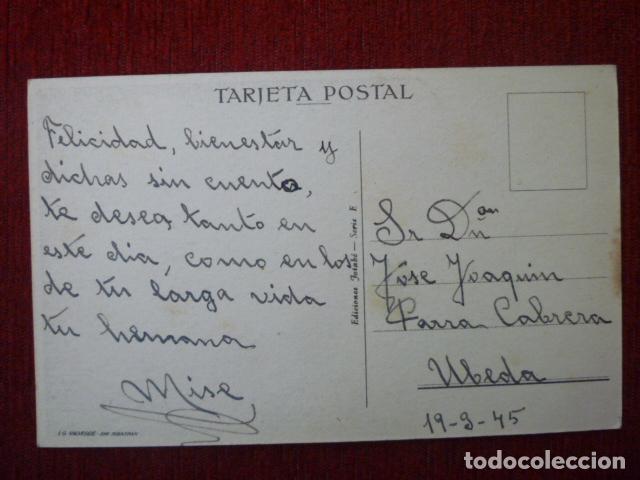 TARJETA POSTAL
Felicidad, bienestar y
dichas sin cuento,
te desea, tanto en
este dia, como en los
de tu larga vida
tu hermana
Mise
Ediciones — Serie E
Sr Dn
Jóse Joaquin
Parra Cabrera
Ubeda
19-9-45
todocoleccion.net